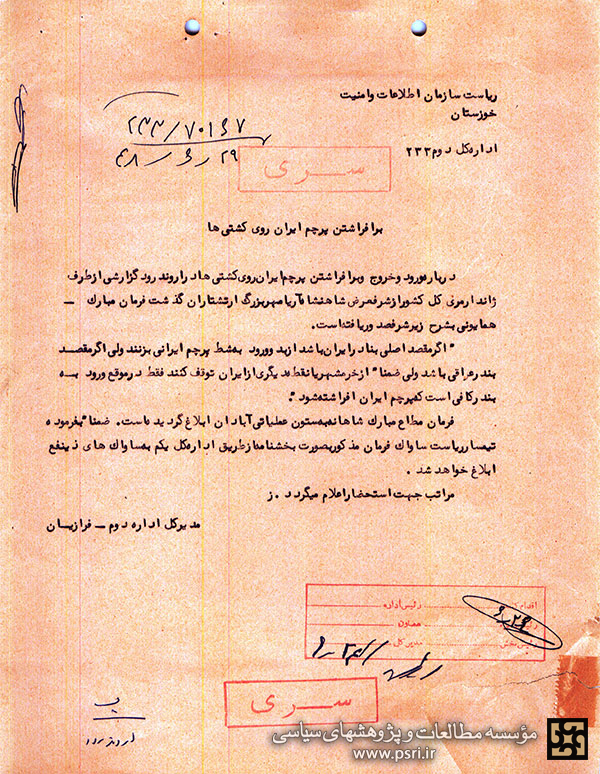 ریاست سازمان اطلاعات وامنیت
خوزستان
۲۳۳/۷۰۱۶۷
۴۸/۶/۲۹
اداره‌کل دوم ۲۳۳
ســری
برافراشتن پرچم ایران روی کشتی‌ها
درباره‌ورود وخروج وبرافراشتن پرچم‌ایران‌روی‌کشتی‌هادراروندرودگزارشی‌ازطرف
ژاندارمری کل کشورازشرفعرض شاهنشاه‌آریامهربزرگ ارتشتاران گذشت فرمان مبارک –
همایونی بشرح زیرشرفصد وریافته‌است.
"اگرمقصد اصلی بنادرایران‌باشدازبدوورود به‌شط پرچم ایرانی بزنند ولی‌اگرمقصد
بندرعراقی باشد ولی ضمنا" ازخرمشهریانقطه‌دیگری‌ازایران توقف کنند فقط درموقع ورود به
بندرکافی است‌که‌پرچم ایران افراشته‌شود".
فرمان مطاع مبارک شاهانه‌به‌ستون عملیاتی‌آبادان ابلاغ‌گردیده‌است. ضمنا"بفرموده
تیمسارریاست ساواک فرمان مذکوربصورت بخشنامه‌ازطریق اداره‌کل یکم به‌ساواک های ذینفع
ابلاغ خواهد شد.
مراتب جهت استحضاراعلام میگردد. ز
مدیرکل اداره دوم – فرازیان
رئیس‌اداره
معاون
مدیرکل
ســری
اروندرود
مؤسسه مطالعات و پژوهشهای سیاسی
www.psri.ir